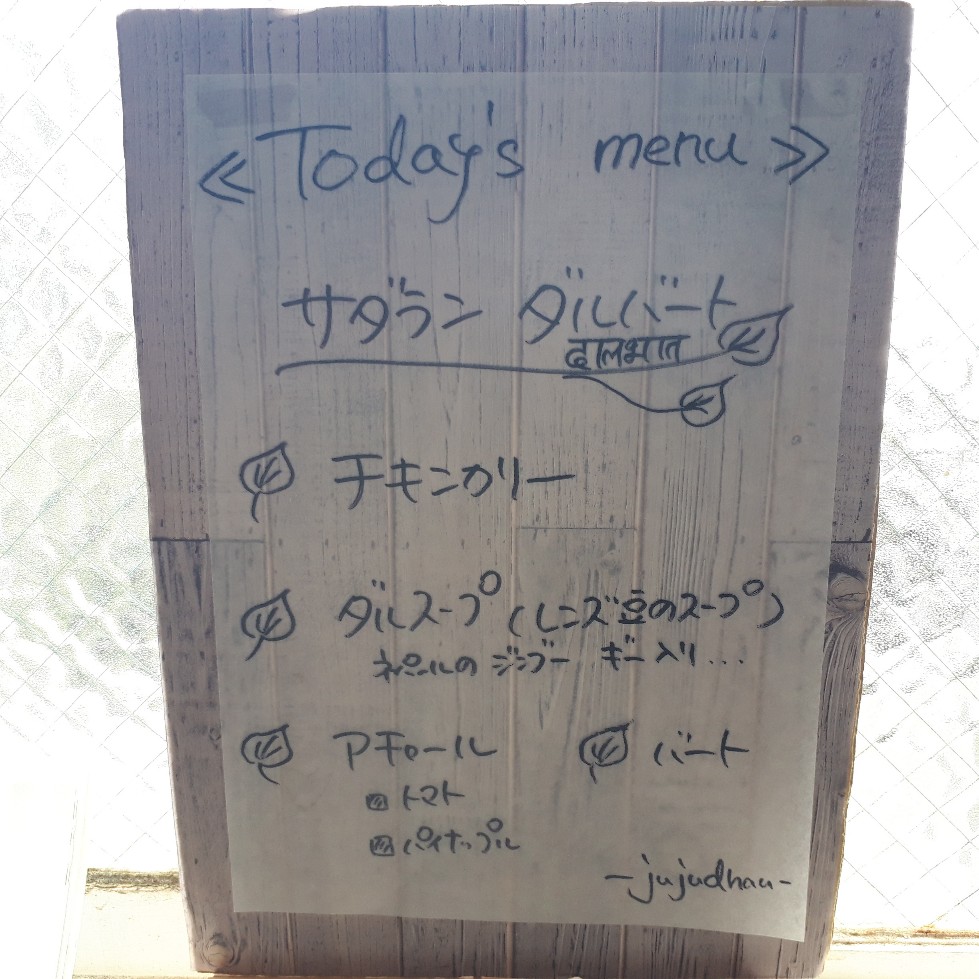 ≪ Today's menu ≫
サダラン ダルバート
दालभात
チキンカリー
ダルスープ (レンズ豆のスープ)
ネパールの ジンブー ギー入り...
アチャール
バート
トマト
パイナップル
-jujudhau-